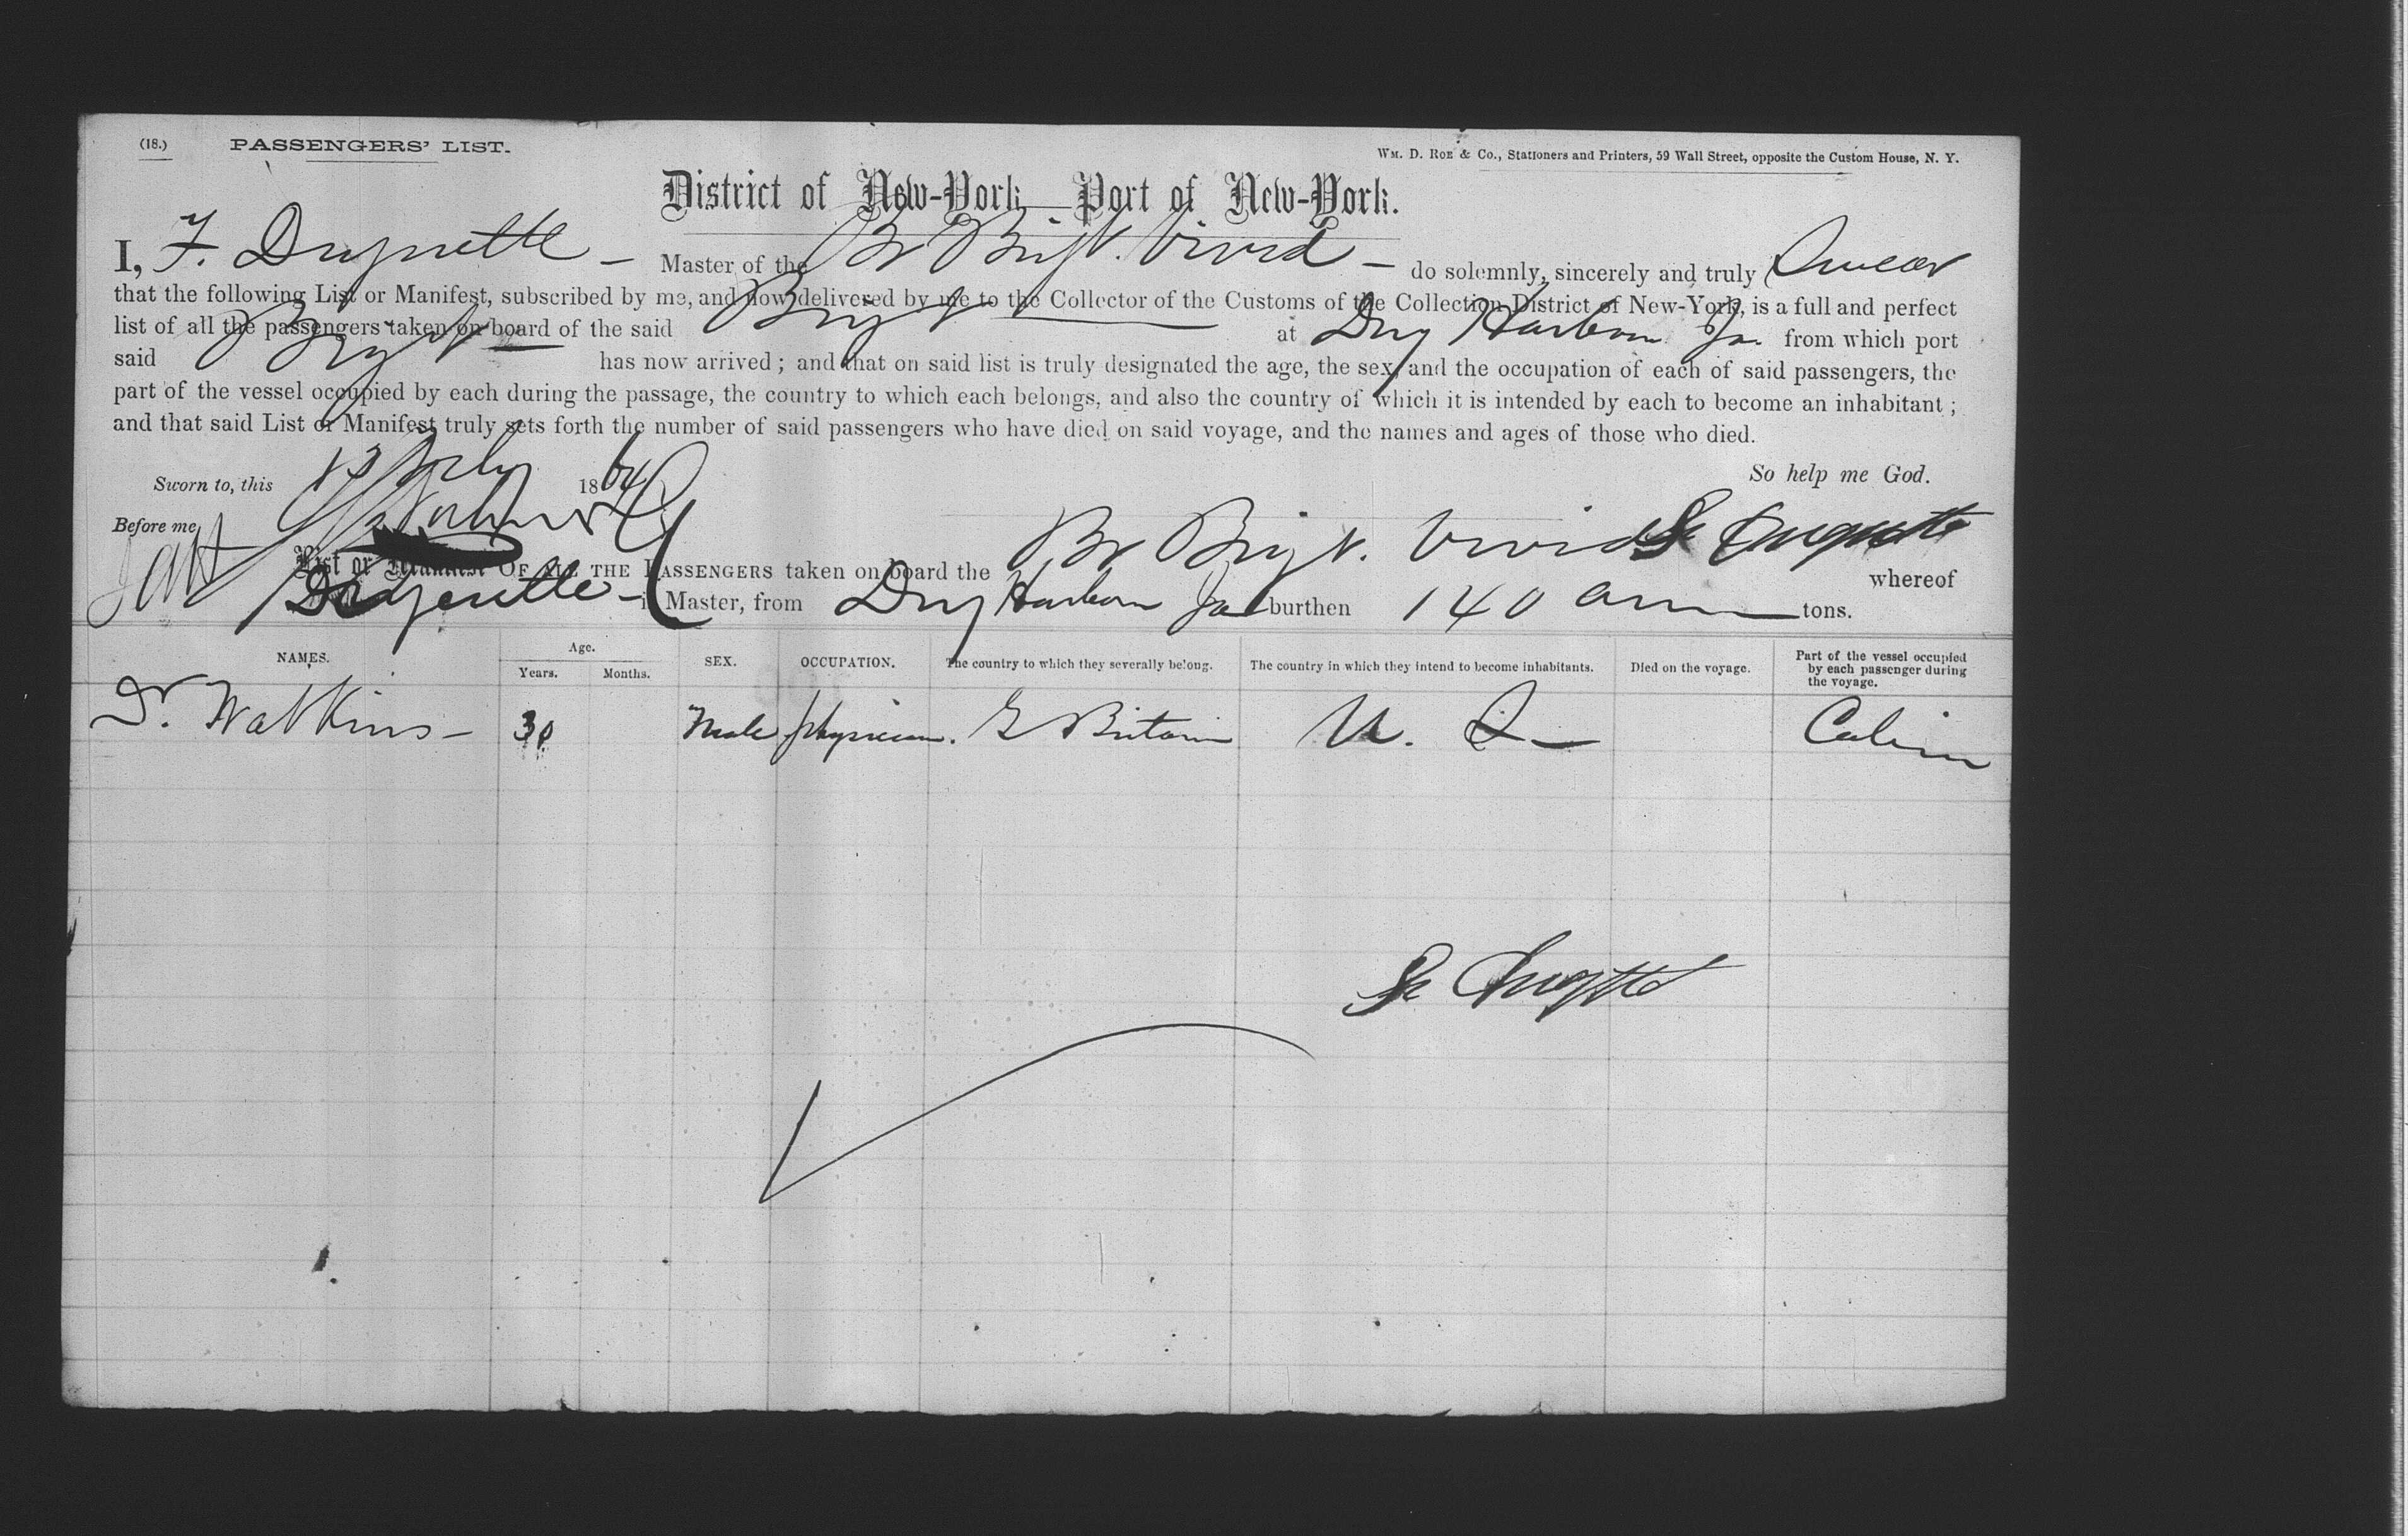 (18.) PASSENGERS' LIST.
WM. D. ROE & CO., Stationers and Printers, 59 Wall Street, opposite the Custom House, N. Y.
District of New-York—Port of New-York.
I, F. — Master of the Br Brigt. Vivid — do solemnly, sincerely and truly Swear
that the following List or Manifest, subscribed by me, and now delivered by me to the Collector of the Customs of the Collection District of New-York, is a full and perfect
list of all the passengers taken on board of the said Brigt at Dry Harbour Ja. from which port
said Brigt has now arrived; and that on said list is truly designated the age, the sex, and the occupation of each of said passengers, the
part of the vessel occupied by each during the passage, the country to which each belongs, and also the country of which it is intended by each to become an inhabitant;
and that said List or Manifest truly sets forth the number of said passengers who have died on said voyage, and the names and ages of those who died.
So help me God.
Sworn to, this 13 July 1864
Before me,
List or Manifest OF ALL THE PASSENGERS taken on board the Br Brigt. Vivid whereof
is Master, from Dry Harbour Ja burthen 140 tons.
NAMES. Age. Years. Months. SEX. OCCUPATION. The country to which they severally belong. The country in which they intend to become inhabitants. Died on the voyage. Part of the vessel occupied by each passenger during the voyage.
Dr. Watkins — 30 Male physician. G Britain U. S — Cabin